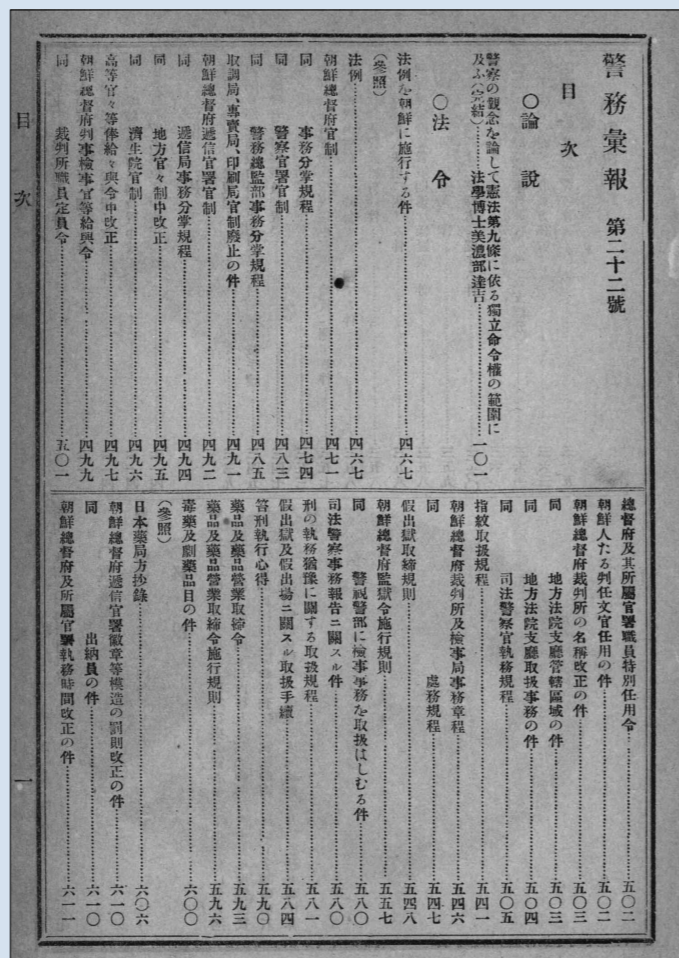 警務彙報 第二十二號
目次
〇論說
警察の觀念を論して憲法第九條に依る獨立命令權の範圍に
及ふ(完結)…………法學博士美濃部達吉…………一〇一
〇法令
法例を朝鮮に施行する件…………四六七
(參照)
法例…………四六七
朝鮮總督府官制…………四七一
同 事務分掌規程…………四七四
同 警察官署官制…………四八三
同 警務總監部事務分掌規程…………四八五
取調局、專賣局、印刷局官制廢止の件…………四九一
朝鮮總督府遞信官署官制…………四九二
同 遞信局事務分掌規程…………四九四
同 地方官々制中改正…………四九五
同 濟生院官制…………四九六
高等官々等俸給々與令中改正…………四九七
朝鮮總督府判事檢事官等給與令…………四九九
同 裁判所職員定員令…………五〇一
總督府及其所屬官署職員特別任用令…………五〇二
朝鮮人たる判任文官任用の件…………五〇二
朝鮮總督府裁判所の名稱改正の件…………五〇三
同 地方法院支廳管轄區域の件…………五〇三
同 地方法院支廳取扱事務の件…………五〇四
同 司法警察官執務規程…………五〇五
指紋取扱規程…………五四一
朝鮮總督府裁判所及檢事局事務章程…………五四六
同 處務規程…………五四七
假出獄取締規則…………五四八
朝鮮總督府監獄令施行規則…………五五七
同 警視警部に檢事事務を取扱はしむる件…………五八〇
司法警察事務報告ニ關スル件…………五八〇
刑の執務猶豫に關する取扱規程…………五八一
假出獄及假出場ニ關スル取扱手續…………五八四
笞刑執行心得…………五九〇
藥品及藥品營業取締令…………五九三
藥品及藥品營業取締令施行規則…………五九六
毒藥及劇藥品目の件…………六〇〇
(參照)
日本藥局方抄錄…………六〇六
朝鮮總督府遞信官署徽章等模造の罰則改正の件…………六一〇
同 出納員の件…………六一〇
朝鮮總督府及所屬官署執務時間改正の件…………六一一
目次
一